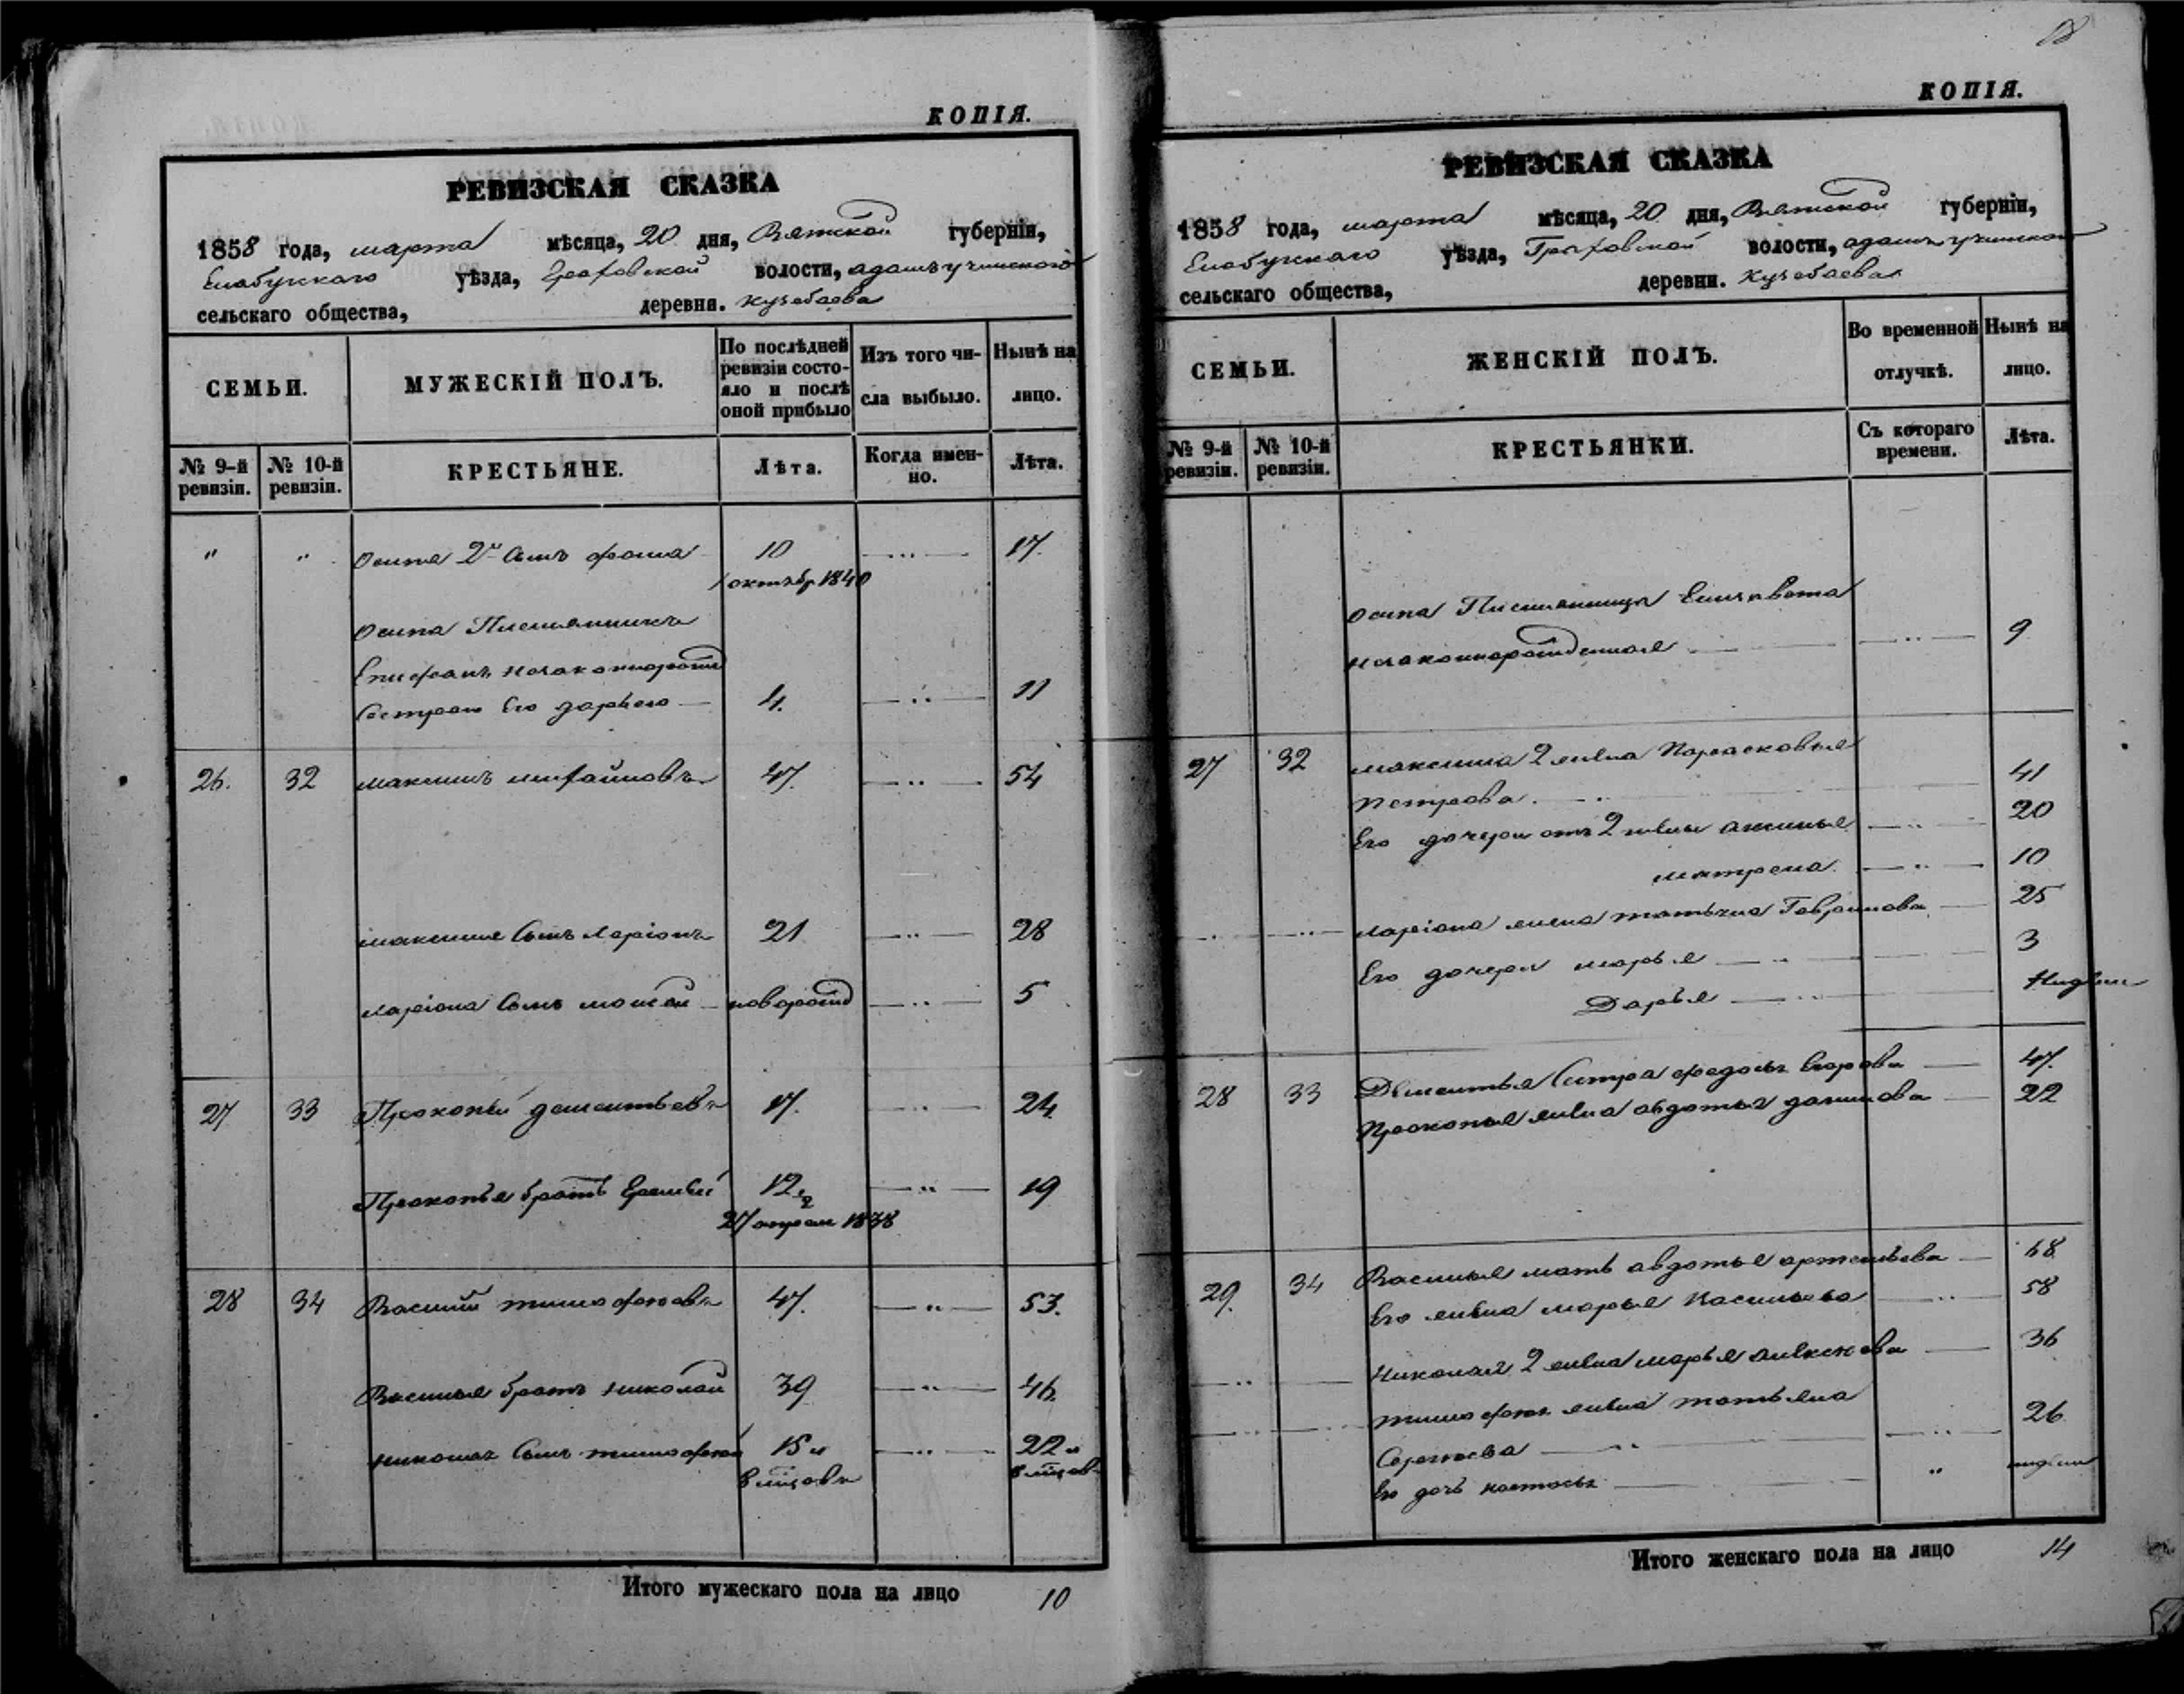 КОПІЯ.
РЕВИЗСКАЯ СКАЗКА
1858 года, марта мѣсяца, 20 дня, Вятской губерніи,
Елабужскаго уѣзда, Граховской волости,
сельскаго общества, деревня. Кузебаева
СЕМЬИ.
МУЖЕСКІЙ ПОЛЪ.
По послѣдней ревизіи состояло и послѣ оной прибыло
Изъ того числа выбыло.
Нынѣ на лицо.
№ 9-й ревизіи.
№ 10-й ревизіи.
КРЕСТЬЯНЕ.
Лѣта.
Когда именно.
Лѣта.
" " Осипа 2й сынъ Фома 10 17.
1 октябр 1840
Осипа Племянникъ
Епифанъ незаконнорожд
Сестрою Его Дарьею 4. 11
26. 32 Максимъ Михайловъ 47. 54
Максима Сынъ Ларіонъ 21 28
Ларіона Сынъ Моисей новорожд 5
27 33 Прокопей Дементьевъ 17. 24
Прокопья братъ Еремѣй 12 19
27 апреля 1838
28 34 Василий Тимофеевъ 47. 53.
Василья братъ Николай 39 46
Николая Сынъ Тимофей 15 и 22 и
6 мѣсцовъ 6 мѣсцов
Итого мужескаго пола на лицо 10
КОПІЯ.
РЕВИЗСКАЯ СКАЗКА
1858 года, марта мѣсяца, 20 дня, Вятской губерніи,
Елабужскаго уѣзда, Граховской волости,
сельскаго общества, деревни. Кузебаева
СЕМЬИ.
ЖЕНСКІЙ ПОЛЪ.
Во временной отлучкѣ.
Нынѣ на лицо.
№ 9-й ревизіи.
№ 10-й ревизіи.
КРЕСТЬЯНКИ.
Съ котораго времени.
Лѣта.
Осипа Племянница Елизавета
незаконнорожденная 9
27 32 Максима 2 жена Парасковья
Петрова. 41
Его дочери отъ 2 жены Аксинья 20
Матрена. 10
Ларіона жена Татьяна Гаврилова 25
Его дочери Марья 3
Дарья Недели
28 33 Дементья Сестра Федосья Егорова 47.
Прокопья жена Авдотья Данилова 22
29. 34 Василья мать Авдотья Артемьева 68
Его жена Марья Васильева 58
Николая 2 жена Марья Алексеева 36
Тимофея жена Татьяна
Сергеева 26
Его дочь Настасья " недели
Итого женскаго пола на лицо 14